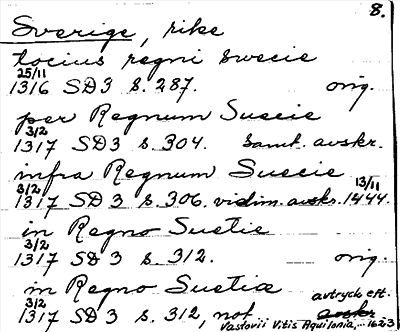 8.
Sverige, rike
tocius regni Swecie
25/11
1316 SD3 s. 287. orig.
per Regnum Suecie
3/2
1317 SD3 s. 304. Samt. avskr.
infra Regnum Suecie
3/2 13/11
1317 SD 3 s. 306. vidim. avskr. 1444.
in Regno Suetie
3/2
1317 SD 3 s. 312. orig.
in Regno Suetiæ avtryck eft.
3/2 avskr
1317 SD 3 s. 312, not
Vastovii Vitis Aquilonia, 1623